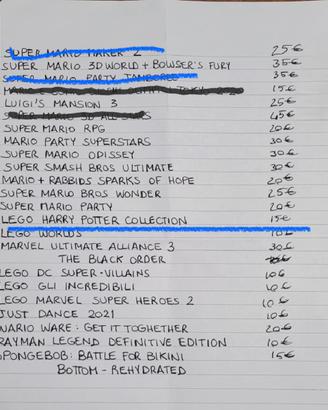 SUPER MARIO MAKER 2 25€
SUPER MARIO 3D WORLD + BOWSER'S FURY 35€
SUPER MARIO PARTY JAMBOREE 35€
15€
LUIGI'S MANSION 3 25€
SUPER MARIO 3D ALL STARS 45€
SUPER MARIO RPG 20€
MARIO PARTY SUPERSTARS 30€
SUPER MARIO ODISSEY 30€
SUPER SMASH BROS ULTIMATE 30€
MARIO + RABBIDS SPARKS OF HOPE 20€
SUPER MARIO BROS WONDER 25€
SUPER MARIO PARTY 20€
LEGO HARRY POTTER COLLECTION 15€
LEGO WORLDS 10€
MARVEL ULTIMATE ALLIANCE 3 30€
THE BLACK ORDER
LEGO DC SUPER-VILLAINS 10€
LEGO GLI INCREDIBILI 10€
LEGO MARVEL SUPER HEROES 2 10€
JUST DANCE 2021 10€
WARIO WARE: GET IT TOGHETHER 20€
RAYMAN LEGEND DEFINITIVE EDITION 10€
SPONGEBOB: BATTLE FOR BIKINI 15€
BOTTOM - REHYDRATED